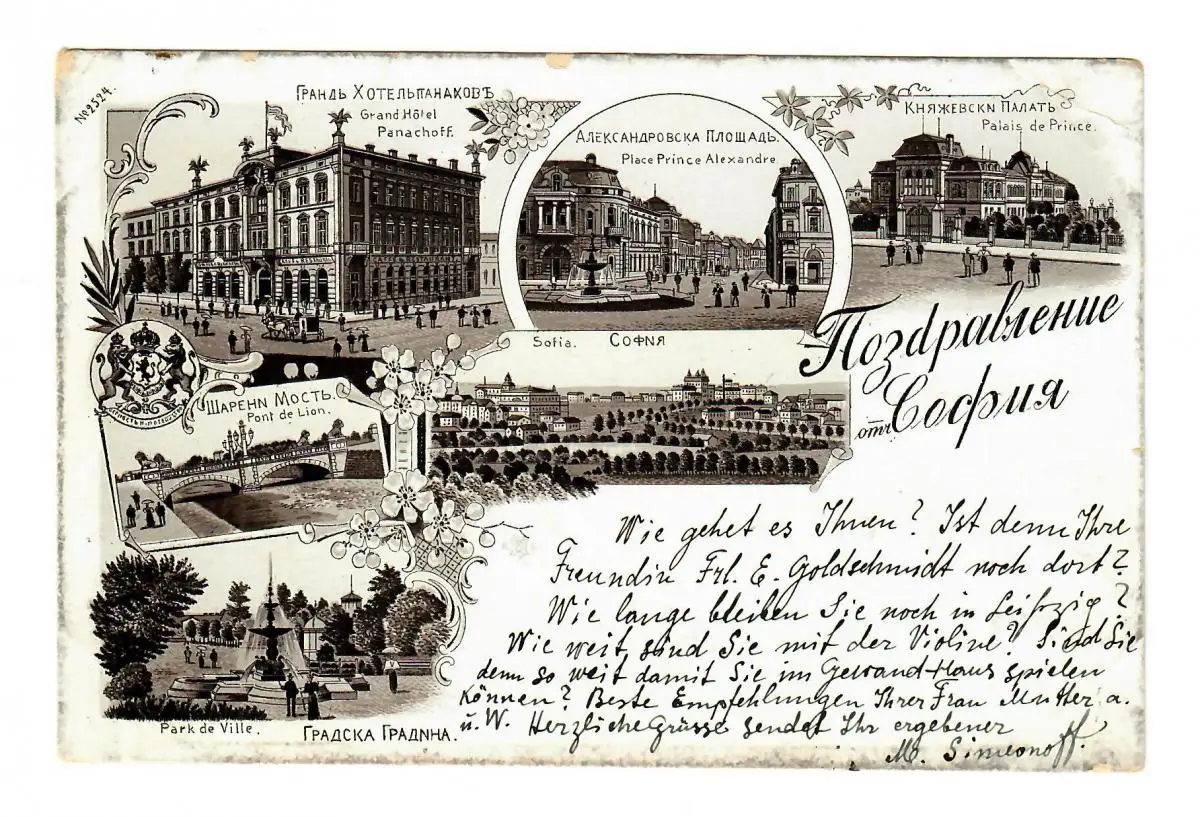 №2524.
Грандъ Хотелъ Панаховъ
Grand Hôtel
Panachoff.
Александровска Площадь.
Place Prince Alexandre
Княжевски Палатъ
Palais de Prince.
Sofia. София
Поздравление
отъ София
Шарени Мостъ.
Pont de Lion.
Wie gehet es Ihnen? Ist denn Ihre
Freundin Frl. E. Goldschmidt noch dort?
Wie lange bleiben Sie noch in Leipzig?
Wie weit sind Sie mit der Violine? Sind Sie
denn so weit damit Sie im Gewand-Haus spielen
können? Beste Empfehlungen Ihrer Frau Mutter a.
u. W. Herzliche Grüsse sendet Ihr ergebener
M. Simeonoff.
Park de Ville. Градска Градина.